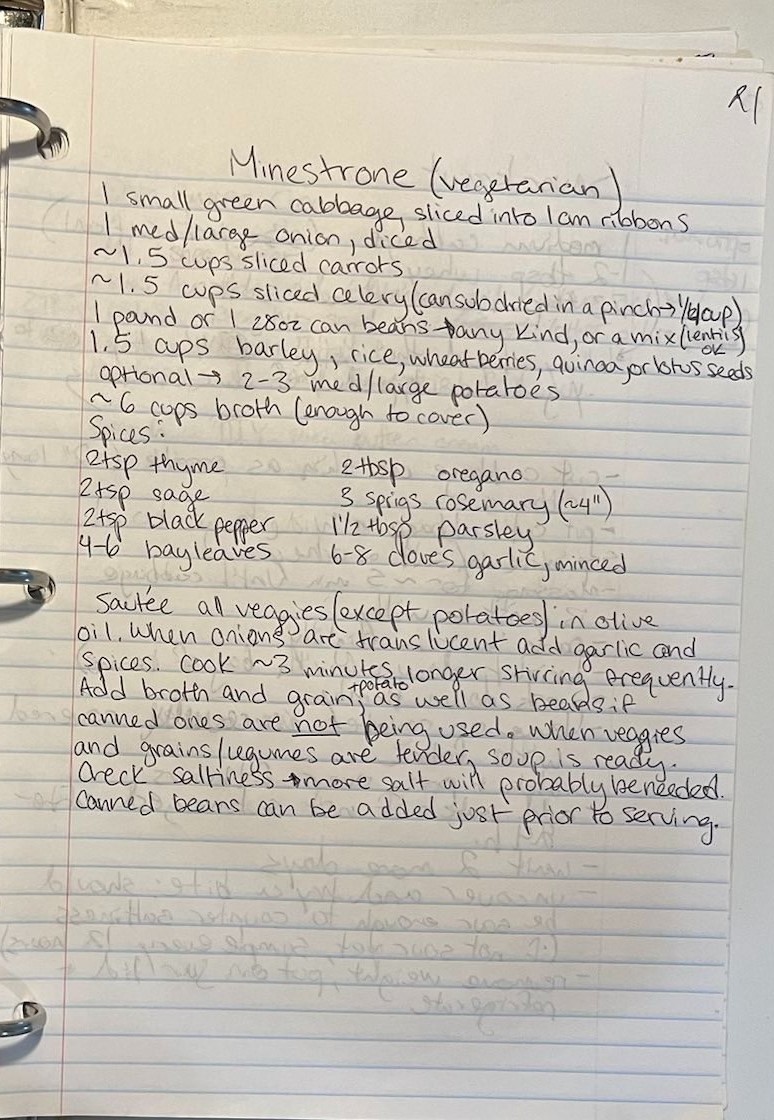 R1
Minestrone (vegetarian)
1 small green cabbage, sliced into 1cm ribbons
1 med/large onion, diced
~1.5 cups sliced carrots
~1.5 cups sliced celery (can sub dried in a pinch→1/4 cup)
1 pound or 1 28oz can beans→any kind, or a mix (lentils ok)
1.5 cups barley, rice, wheat berries, quinoa, or lotus seeds
optional → 2-3 med/large potatoes
~6 cups broth (enough to cover)
Spices:
2tsp thyme 2tbsp oregano
2tsp sage 3 sprigs rosemary (~4")
2tsp black pepper 1½ tbsp parsley
4-6 bayleaves 6-8 cloves garlic, minced
Sautée all veggies (except potatoes) in olive
oil. When onions are translucent add garlic and
spices. Cook ~3 minutes longer stirring frequently.
Add broth and grain, +potato as well as beans if
canned ones are not being used. When veggies
and grains/legumes are tender, soup is ready.
Check saltiness → more salt will probably be needed.
Canned beans can be added just prior to serving.